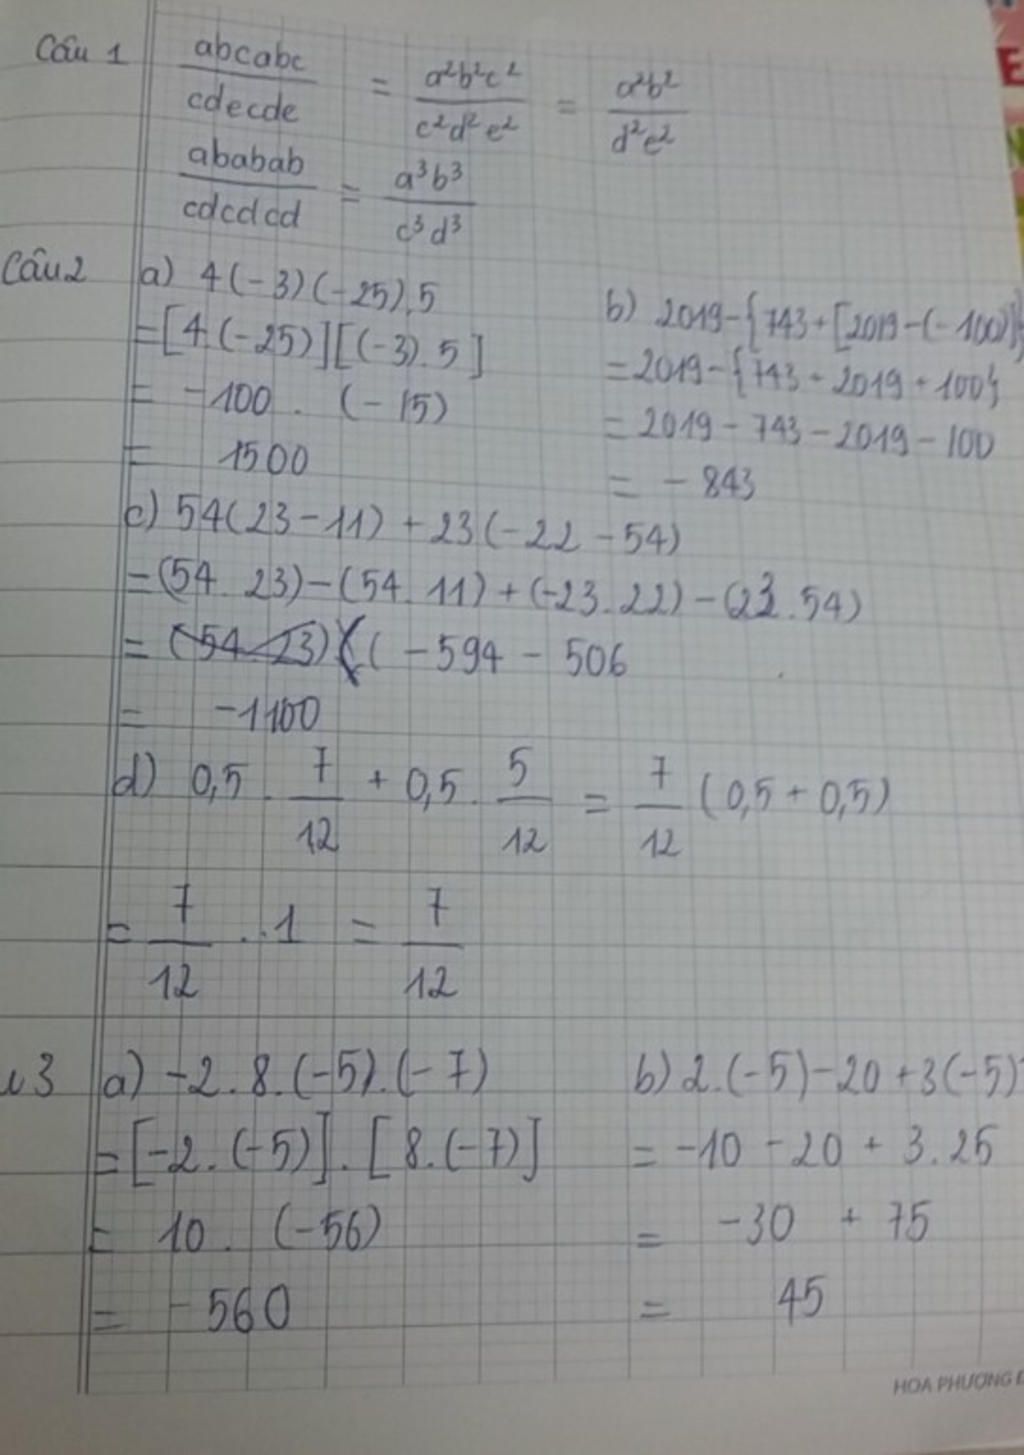 Câu 1 abcabc/cdecde = a²b²c²/c²d²e² = a²b²/d²e²
ababab/cdcdcd = a³b³/c³d³
Câu 2 a) 4(-3)(-25).5
= [4.(-25)][(-3).5]
= -100 . (-15)
= 1500
b) 2019-{743+[2019-(-100)]}
= 2019-{743+2019+100}
= 2019-743-2019-100
= -843
c) 54(23-11)+23(-22-54)
= (54.23)-(54.11)+(-23.22)-(23.54)
= (54.23)(( -594 - 506
= -1100
d) 0,5 . 7/12 + 0,5 . 5/12 = 7/12 (0,5+0,5)
= 7/12 . . 1 = 7/12
u 3 a) -2.8.(-5).(-7)
= [-2.(-5)].[8.(-7)]
= 10 . (-56)
= -560
b) 2.(-5)-20+3(-5)²
= -10-20+3.25
= -30 + 75
= 45
HOA PHUONG
E